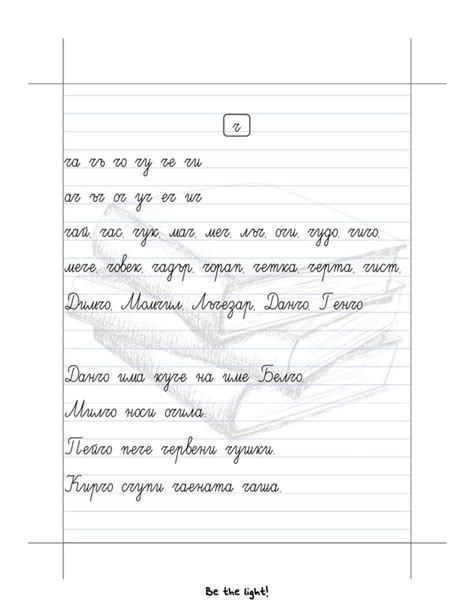 ч
ча чъ чо чу че чи
ач ъч оч уч еч ич
чай, час, чук, мач, меч, лъч, очи, чудо, чичо,
мече, човек, чадър, чорап, четка, черта, чист.
Димчо, Момчил, Лъчезар, Данчо, Генчо
Данчо има куче на име Белчо.
Милчо носи очила.
Пейчо пече червени чушки.
Кирчо счупи чаената чаша.
Be the light!